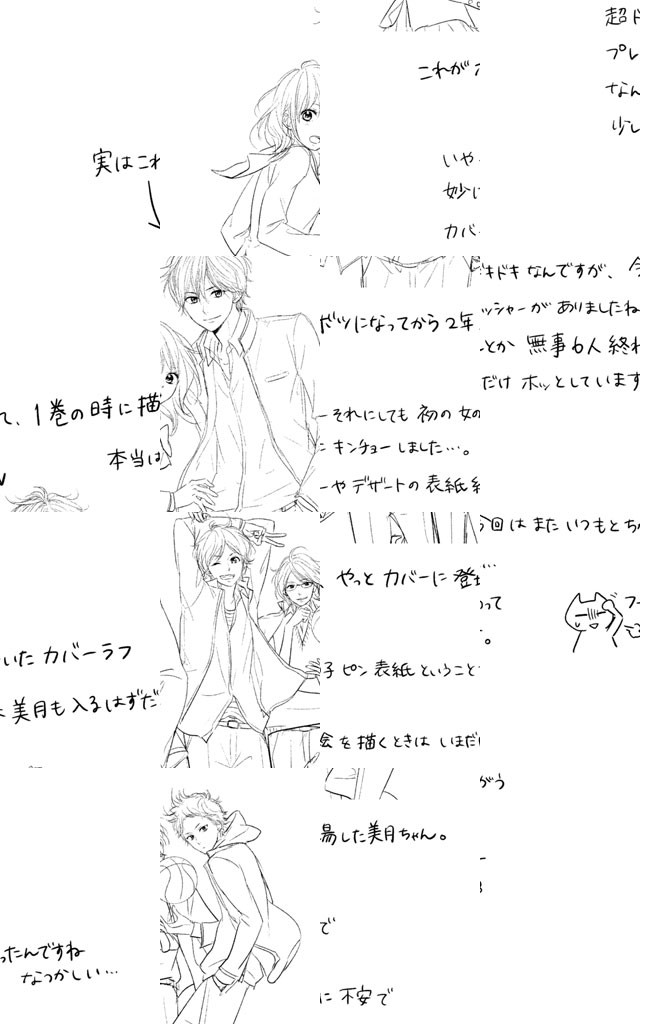 実はこれ
て、1巻の時に描
本当は
いたカバーラフ
美月も入るはずだ
ったんですね
なつかしい…
これが
いや
妙に
カバー
ザツになってから2年
それにしても 初の女の
キンチョーしました…。
ーやデザートの表紙
やっと カバーに 登場
子ピン表紙ということ
絵を描くときは いまだに
場した美月ちゃん。
で
に 不安で
超ド
プレ
なん
少し
キドキなんですが、今
ッシャーが ありましたね
とか 無事6人 終わ
だけ ホッとしています
今回は また いつもとち
って
。
フー
がう